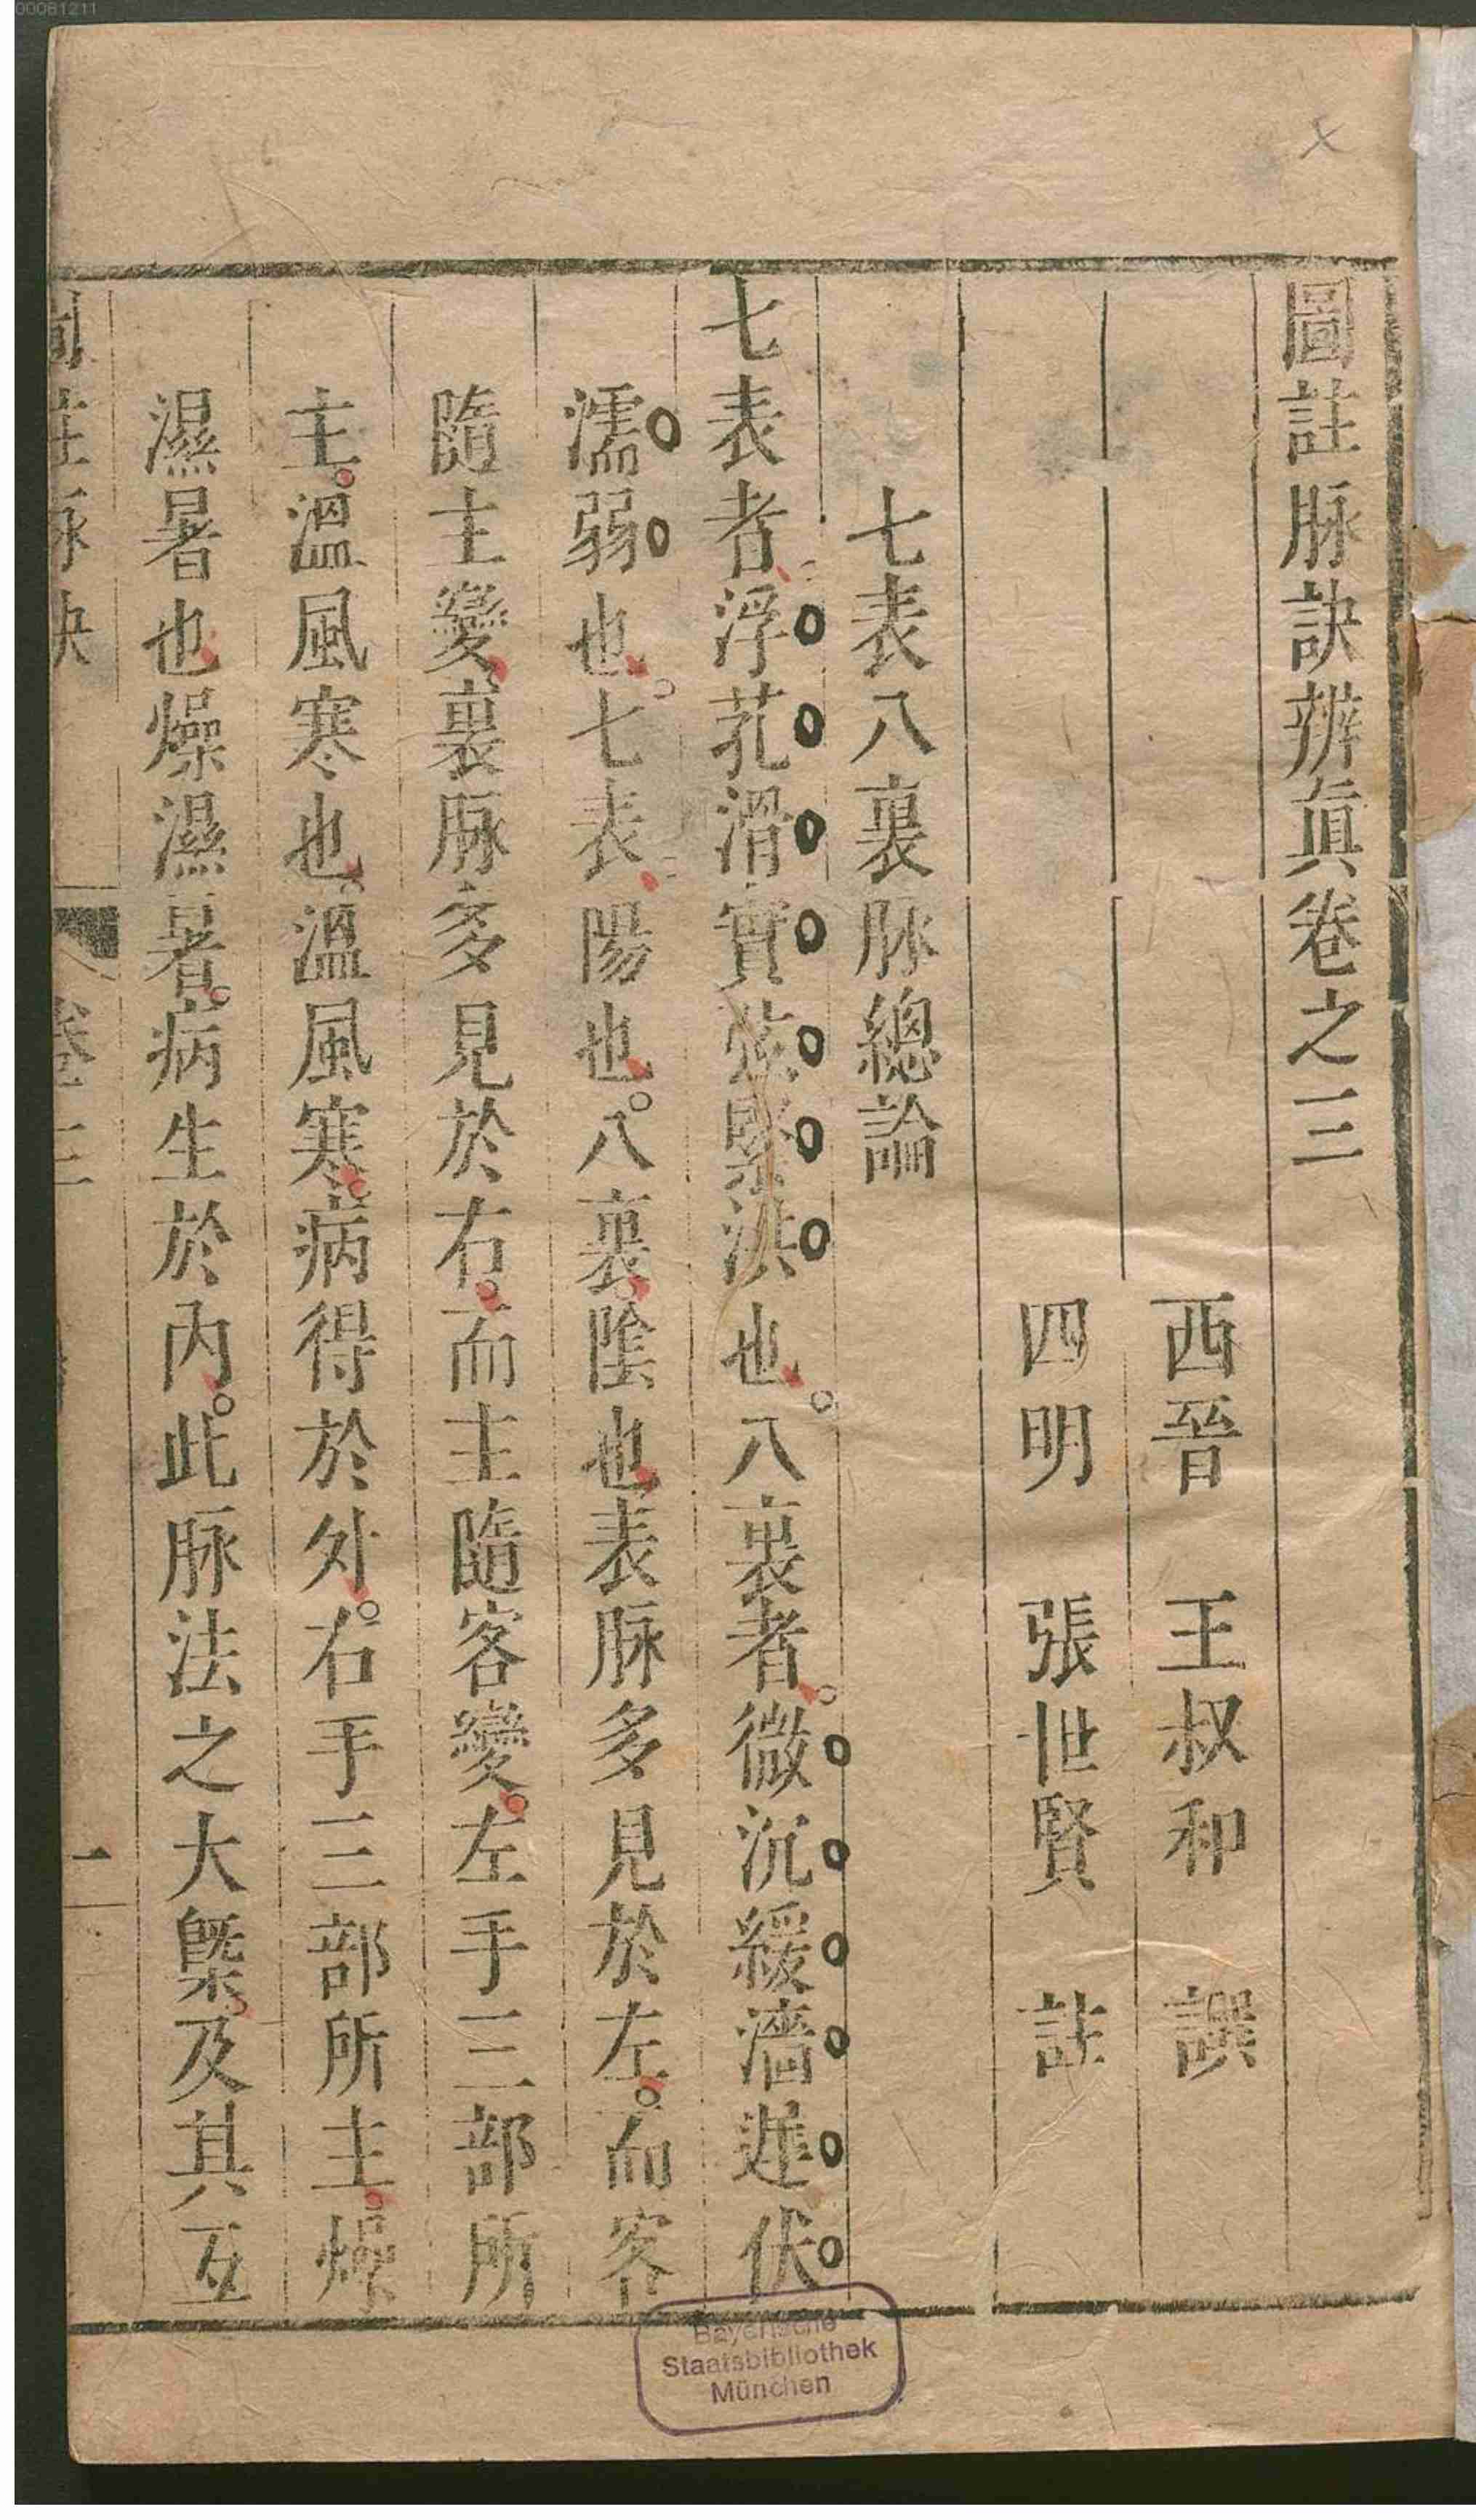 圖註脉訣辨眞卷之三
西晉 王叔和 譔
四明 張世賢 註
七表八裏脉總論
七表者浮芤滑實弦緊洪也八裏者微沉緩濇遲伏
濡弱也七表陽也八裏陰也表脉多見於左而客
隨主變裏脉多見於右而主隨客變左手三部所
主溫風寒也溫風寒病得於外右手三部所主燥
濕暑也燥濕暑病生於內此脉法之大槩及其互
圖註脉訣 卷三 一
Bayerische
Staatsbibliothek
München
00081211